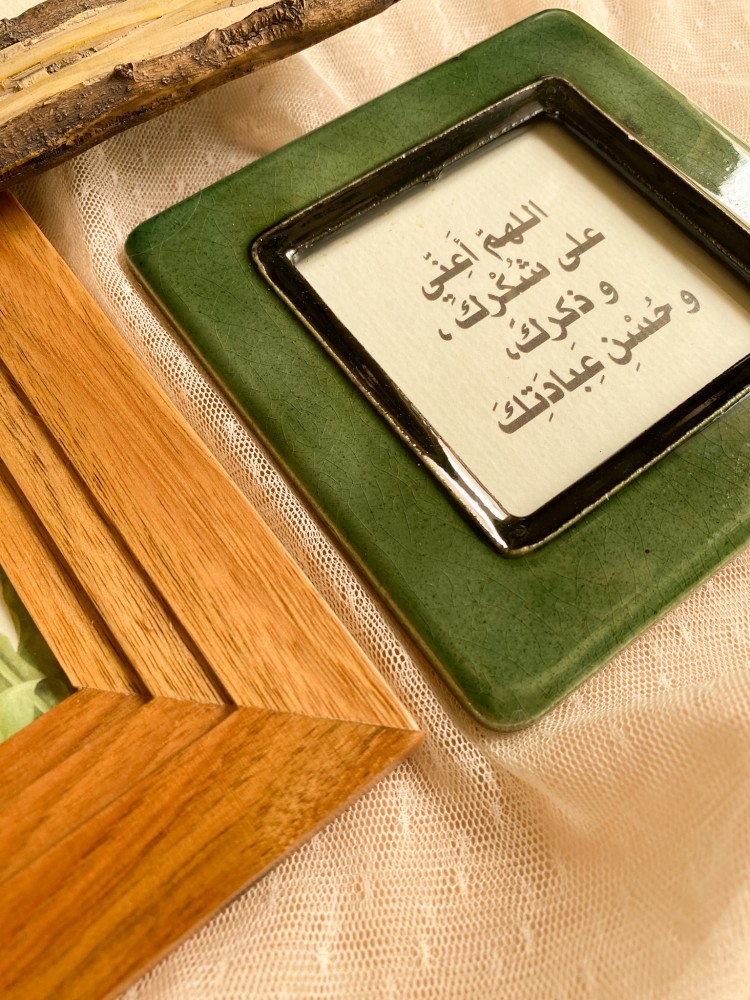 اللهمّ أَعِنّي
على شُكْرِك،
و ذكركَ،
و حُسْنِ عِبَادَتِكَ